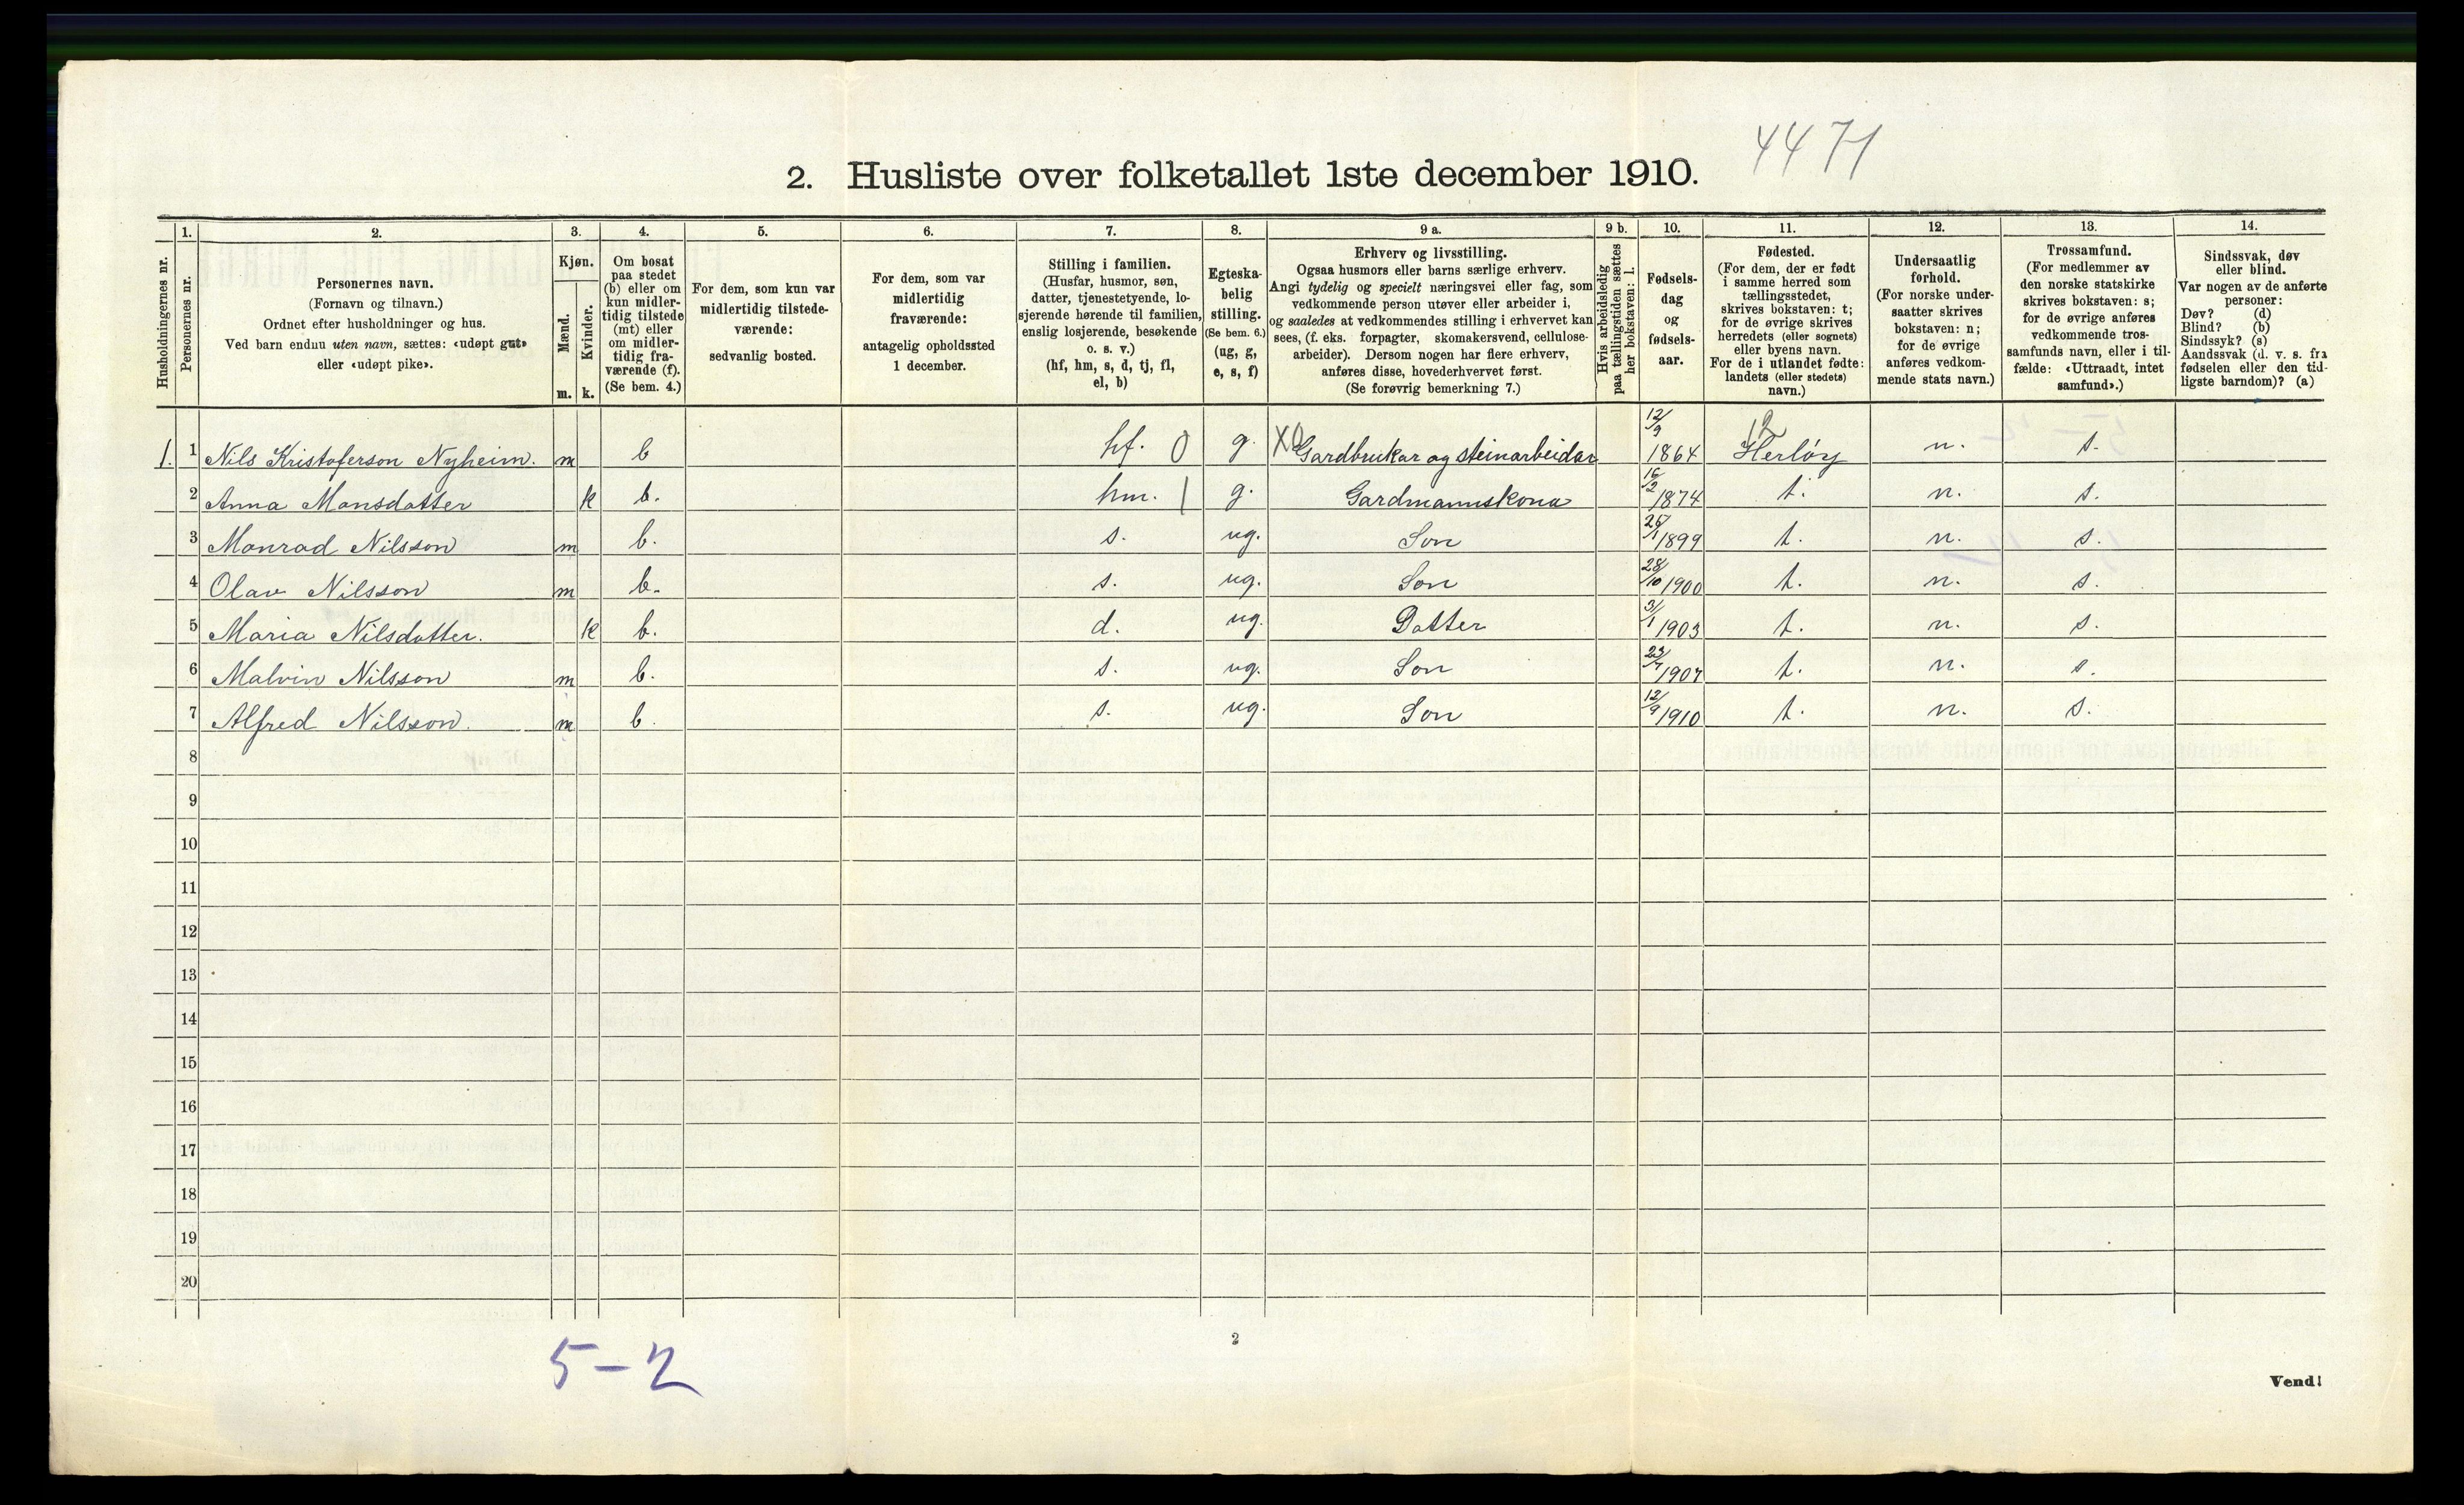 4471
2. Husliste over folketallet 1ste december 1910.
Husholdningernes nr.
1.
Personernes nr.
2.
Personernes navn.
(Fornavn og tilnavn.)
Ordnet efter husholdninger og hus.
Ved barn endnu uten navn, sættes: «udøpt gut»
eller «udøpt pike».
3.
Kjøn.
Mænd.
Kvinder.
m. k.
4.
Om bosat
paa stedet
(b) eller om
kun midler-
tidig tilstede
(mt) eller
om midler-
tidig fra-
værende (f).
(Se bem. 4.)
5.
For dem, som kun var
midlertidig tilstede-
værende:
sedvanlig bosted.
6.
For dem, som var
midlertidig
fraværende:
antagelig opholdssted
1 december.
7.
Stilling i familien.
(Husfar, husmor, søn,
datter, tjenestetyende, lo-
sjerende hørende til familien,
enslig losjerende, besøkende
o. s. v.)
(hf, hm, s, d, tj, fl,
el, b)
8.
Egteska-
belig
stilling.
(Se bem. 6.)
(ug, g,
e, s, f)
9 a.
Erhverv og livsstilling.
Ogsaa husmors eller barns særlige erhverv.
Angi tydelig og specielt næringsvei eller fag, som
vedkommende person utøver eller arbeider i,
og saaledes at vedkommendes stilling i erhvervet kan
sees, (f. eks. forpagter, skomakersvend, cellulose-
arbeider). Dersom nogen har flere erhverv,
anføres disse, hovederhvervet først.
(Se forøvrig bemerkning 7.)
9 b.
Hvis arbeidsledig
paa tællingstiden sættes
her bokstaven: l.
10.
Fødsels-
dag
og
fødsels-
aar.
11.
Fødested.
(For dem, der er født
i samme herred som
tællingsstedet,
skrives bokstaven: t;
for de øvrige skrives
herredets (eller sognets)
eller byens navn.
For de i utlandet fødte:
landets (eller stedets)
navn.)
12.
Undersaatlig
forhold.
(For norske under-
saatter skrives
bokstaven: n;
for de øvrige
anføres vedkom-
mende stats navn.)
13.
Trossamfund.
(For medlemmer av
den norske statskirke
skrives bokstaven: s;
for de øvrige anføres
vedkommende tros-
samfunds navn, eller i til-
fælde: «Uttraadt, intet
samfund».)
14.
Sindssvak, døv
eller blind.
Var nogen av de anførte
personer:
Døv? (d)
Blind? (b)
Sindssyk? (s)
Aandssvak (d. v. s. fra
fødselen eller den tid-
ligste barndom)? (a)
1. 1 Nils Kristoferson Nyheim. m b hf. 0 g. X0 Gardbrukar og steinarbeidar 12/9 1864 12 Herløy n. s.
2 Anna Monsdatter k b. hm. 1 g. Gardmannskona 16/2 1874 t. n. s.
3 Monrad Nilsson m b. s. ug. Son 25/1 1899 t. n. s.
4 Olav Nilsson m b. s. ug. Son 28/10 1900 t. n. s.
5 Maria Nilsdatter. k b. d. ug. Datter 3/1 1903 t. n. s.
6 Malvin Nilsson m b. s. ug. Son 23/7 1907 t. n. s.
7 Alfred Nilsson. m b. s. ug. Son 12/9 1910 t. n. s.
8
9
10
11
12
13
14
15
16
17
18
19
20
5-2
2
Vend!